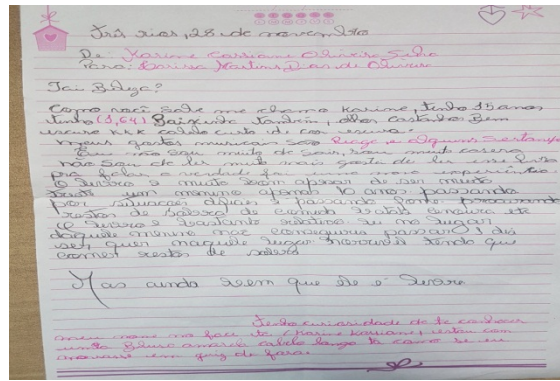 Três rios, 28 de novembro
De: Karine Cassiane Oliveira
Para: Martins Dias de Oliveira
Tai Beleza?
Como você sabe me chamo Karine, tenho 15 anos
tenho (1,64) Baixinha também, olhos castanhos Bem
escuro kkk cabelo curto de cor escura.
meus gostos musicais são e alguns Sertanejo
não sou muito de sair, sou muito caseira
não sou de ler muito mais gosto de ler esse livro
pra falar a verdade foi uma nova experiência.
O livro é muito bom apesar de ser muito
triste um menino apenas 10 anos passando
por situações difíceis e passando fome procurando
restos de comida
O livro é bastante no lugar
daquele menino não conseguiria passar 1 dia
se quer naquele lugar horrível tendo que
comer restos de
Mas ainda bem que ele é livre
Tenho curiosidade de te conhecer
meu nome no face tá Karine Kassiane, estou com
uma Blusa amarela cabelo longo tá como se eu